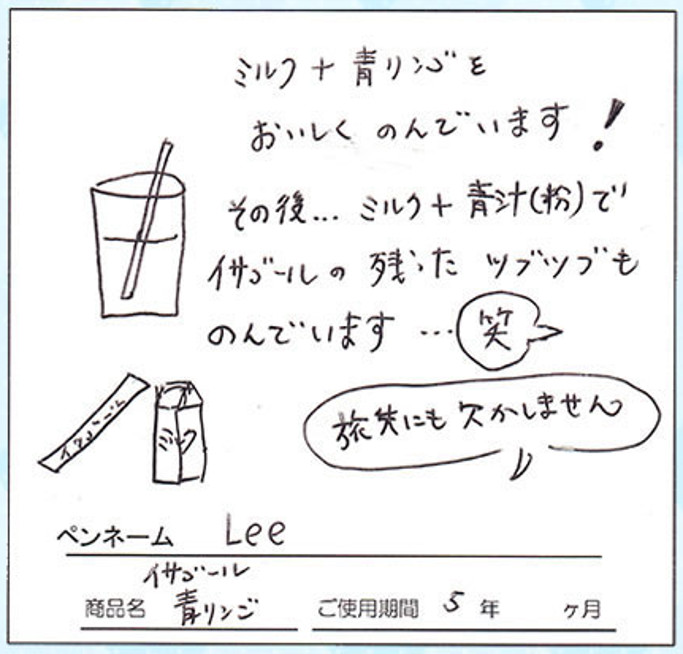 ミルク + 青リンゴを
おいしく のんでいます!
その後... ミルク + 青汁(粉)で
イサゴールの 残った ツブツブも
のんでいます … 笑
イサゴール
ミルク
旅先にも 欠かしません
ペンネーム Lee
イサゴール
商品名 青リンゴ ご使用期間 5 年 ヶ月